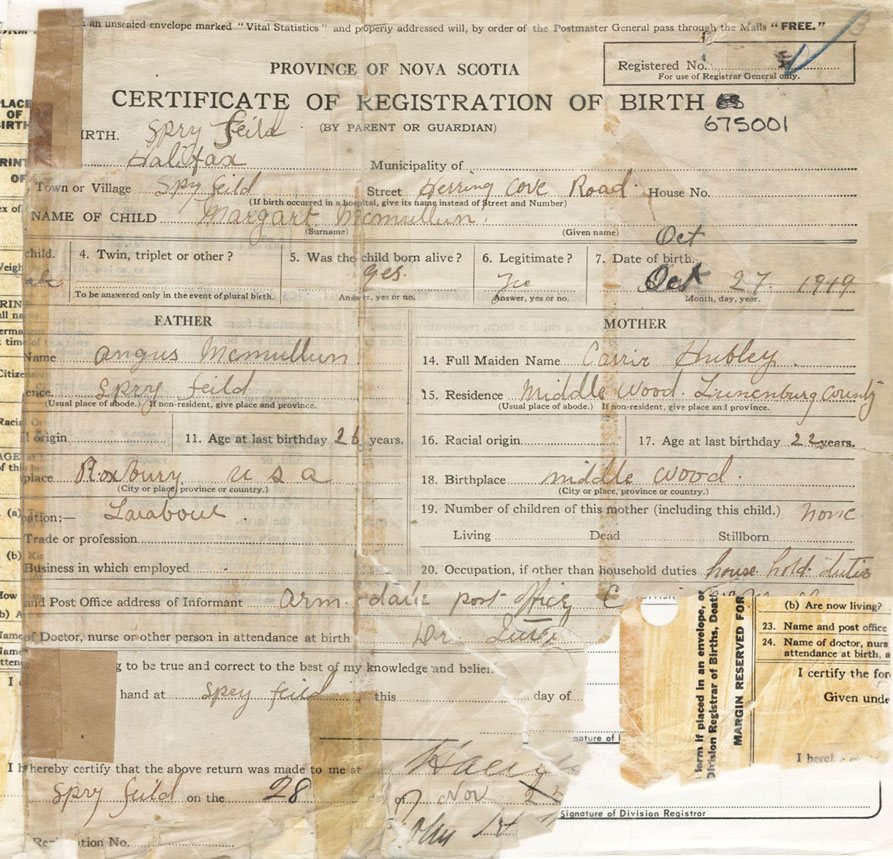 an unsealed envelope marked "Vital Statistics" and properly addressed will, by order of the Postmaster General pass through the Mails "FREE."
Registered No.
For use of Registrar General only.
PROVINCE OF NOVA SCOTIA
CERTIFICATE OF REGISTRATION OF BIRTH
675001
(BY PARENT OR GUARDIAN)
BIRTH. Spry feild
Halifax Municipality of
Town or Village Spy feild Street Herring Cove Road House No.
(If birth occurred in a hospital, give its name instead of Street and Number)
NAME OF CHILD Margart Mcmullun
(Surname) (Given name)
Oct
child. 4. Twin, triplet or other? 5. Was the child born alive? 6. Legitimate? 7. Date of birth.
yes. Oct 27 1919
To be answered only in the event of plural birth. Answer, yes or no. Answer, yes or no. Month, day, year.
FATHER MOTHER
Name angus Mcmullun 14. Full Maiden Name Carrie Hubley
Spry feild 15. Residence Middle Wood. Lunenburg County
(Usual place of abode.) If non-resident, give place and province. (Usual place of abode.) If non-resident, give place and province.
origin 11. Age at last birthday 26 years. 16. Racial origin 17. Age at last birthday 22 years.
place Roxbury u s a 18. Birthplace middle wood.
(City or place, province or country.) (City or place, province or country.)
pation:— Larabour 19. Number of children of this mother (including this child.) none
Trade or profession Living Dead Stillborn
Business in which employed 20. Occupation, if other than household duties house hold duties
and Post Office address of Informant arm dale post office
of Doctor, nurse or other person in attendance at birth Dr
(b) Are now living?
23. Name and post office
24. Name of doctor, nurs
attendance at birth, a
I certify the for
Given unde
I herel
form if placed in an envelope, or
Division Registrar of Births, Death
MARGIN RESERVED FOR
g to be true and correct to the best of my knowledge and belief
hand at Spry feild this day of
I hereby certify that the above return was made to me at
Spry feild on the 28 of Nov
Signature of Division Registrar
Registration No.